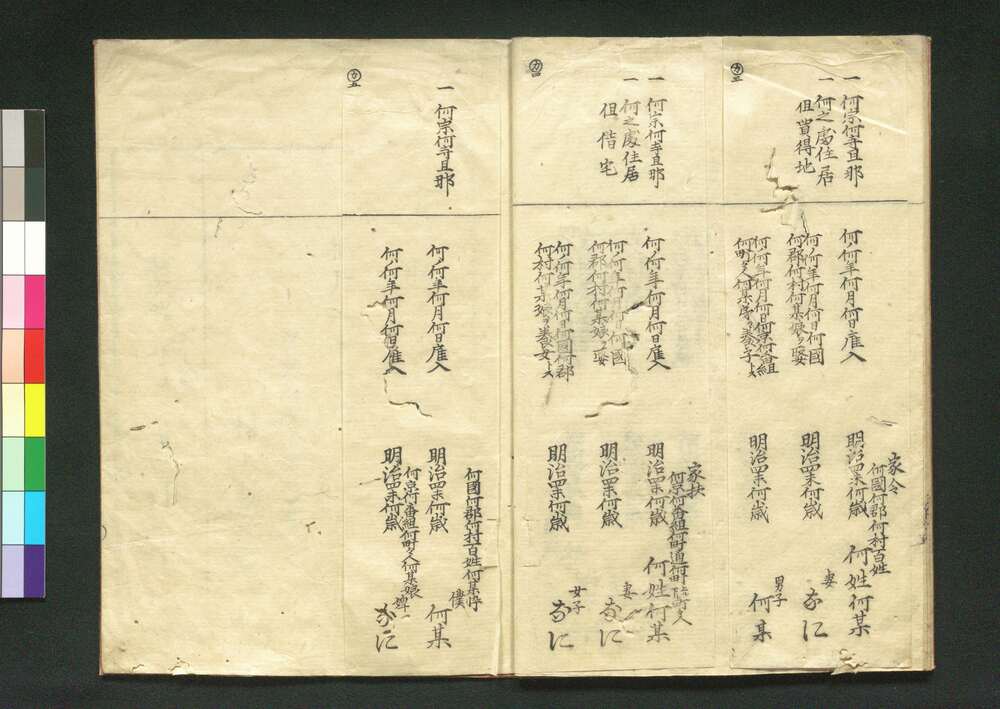 カ三
一 何宗何寺旦那
一 何之處住居
但買得地
何何年何月何日雇入
何何年何月何日何國
何郡何村何某娘ヲ娶
何何年何月何日何京何番組
何町々人何某
家令
何國何郡何村百姓
明治四未何歳 何姓何某
明治四未何歳 妻 なに
明治四未何歳 男子 何某
カ四
一 何宗何寺旦那
一 何之處住居
但借宅
何何年何月何日雇入
何何年何月何日何國
何郡何村何某娘ヲ娶
何何年何月何日何國何郡
何村何某
家扶
何京何番組何町通何町
明治四未何歳 何姓何某
明治四未何歳 妻 なに
明治四未何歳 女子 なに
カ五
一 何宗何寺旦那
何何年何月何日雇入
何何年何月何日雇入
何國何郡何村百姓何某悴
明治四未何歳 僕 何某
何京何番組何町々人何某娘
明治四未何歳 婢 なに